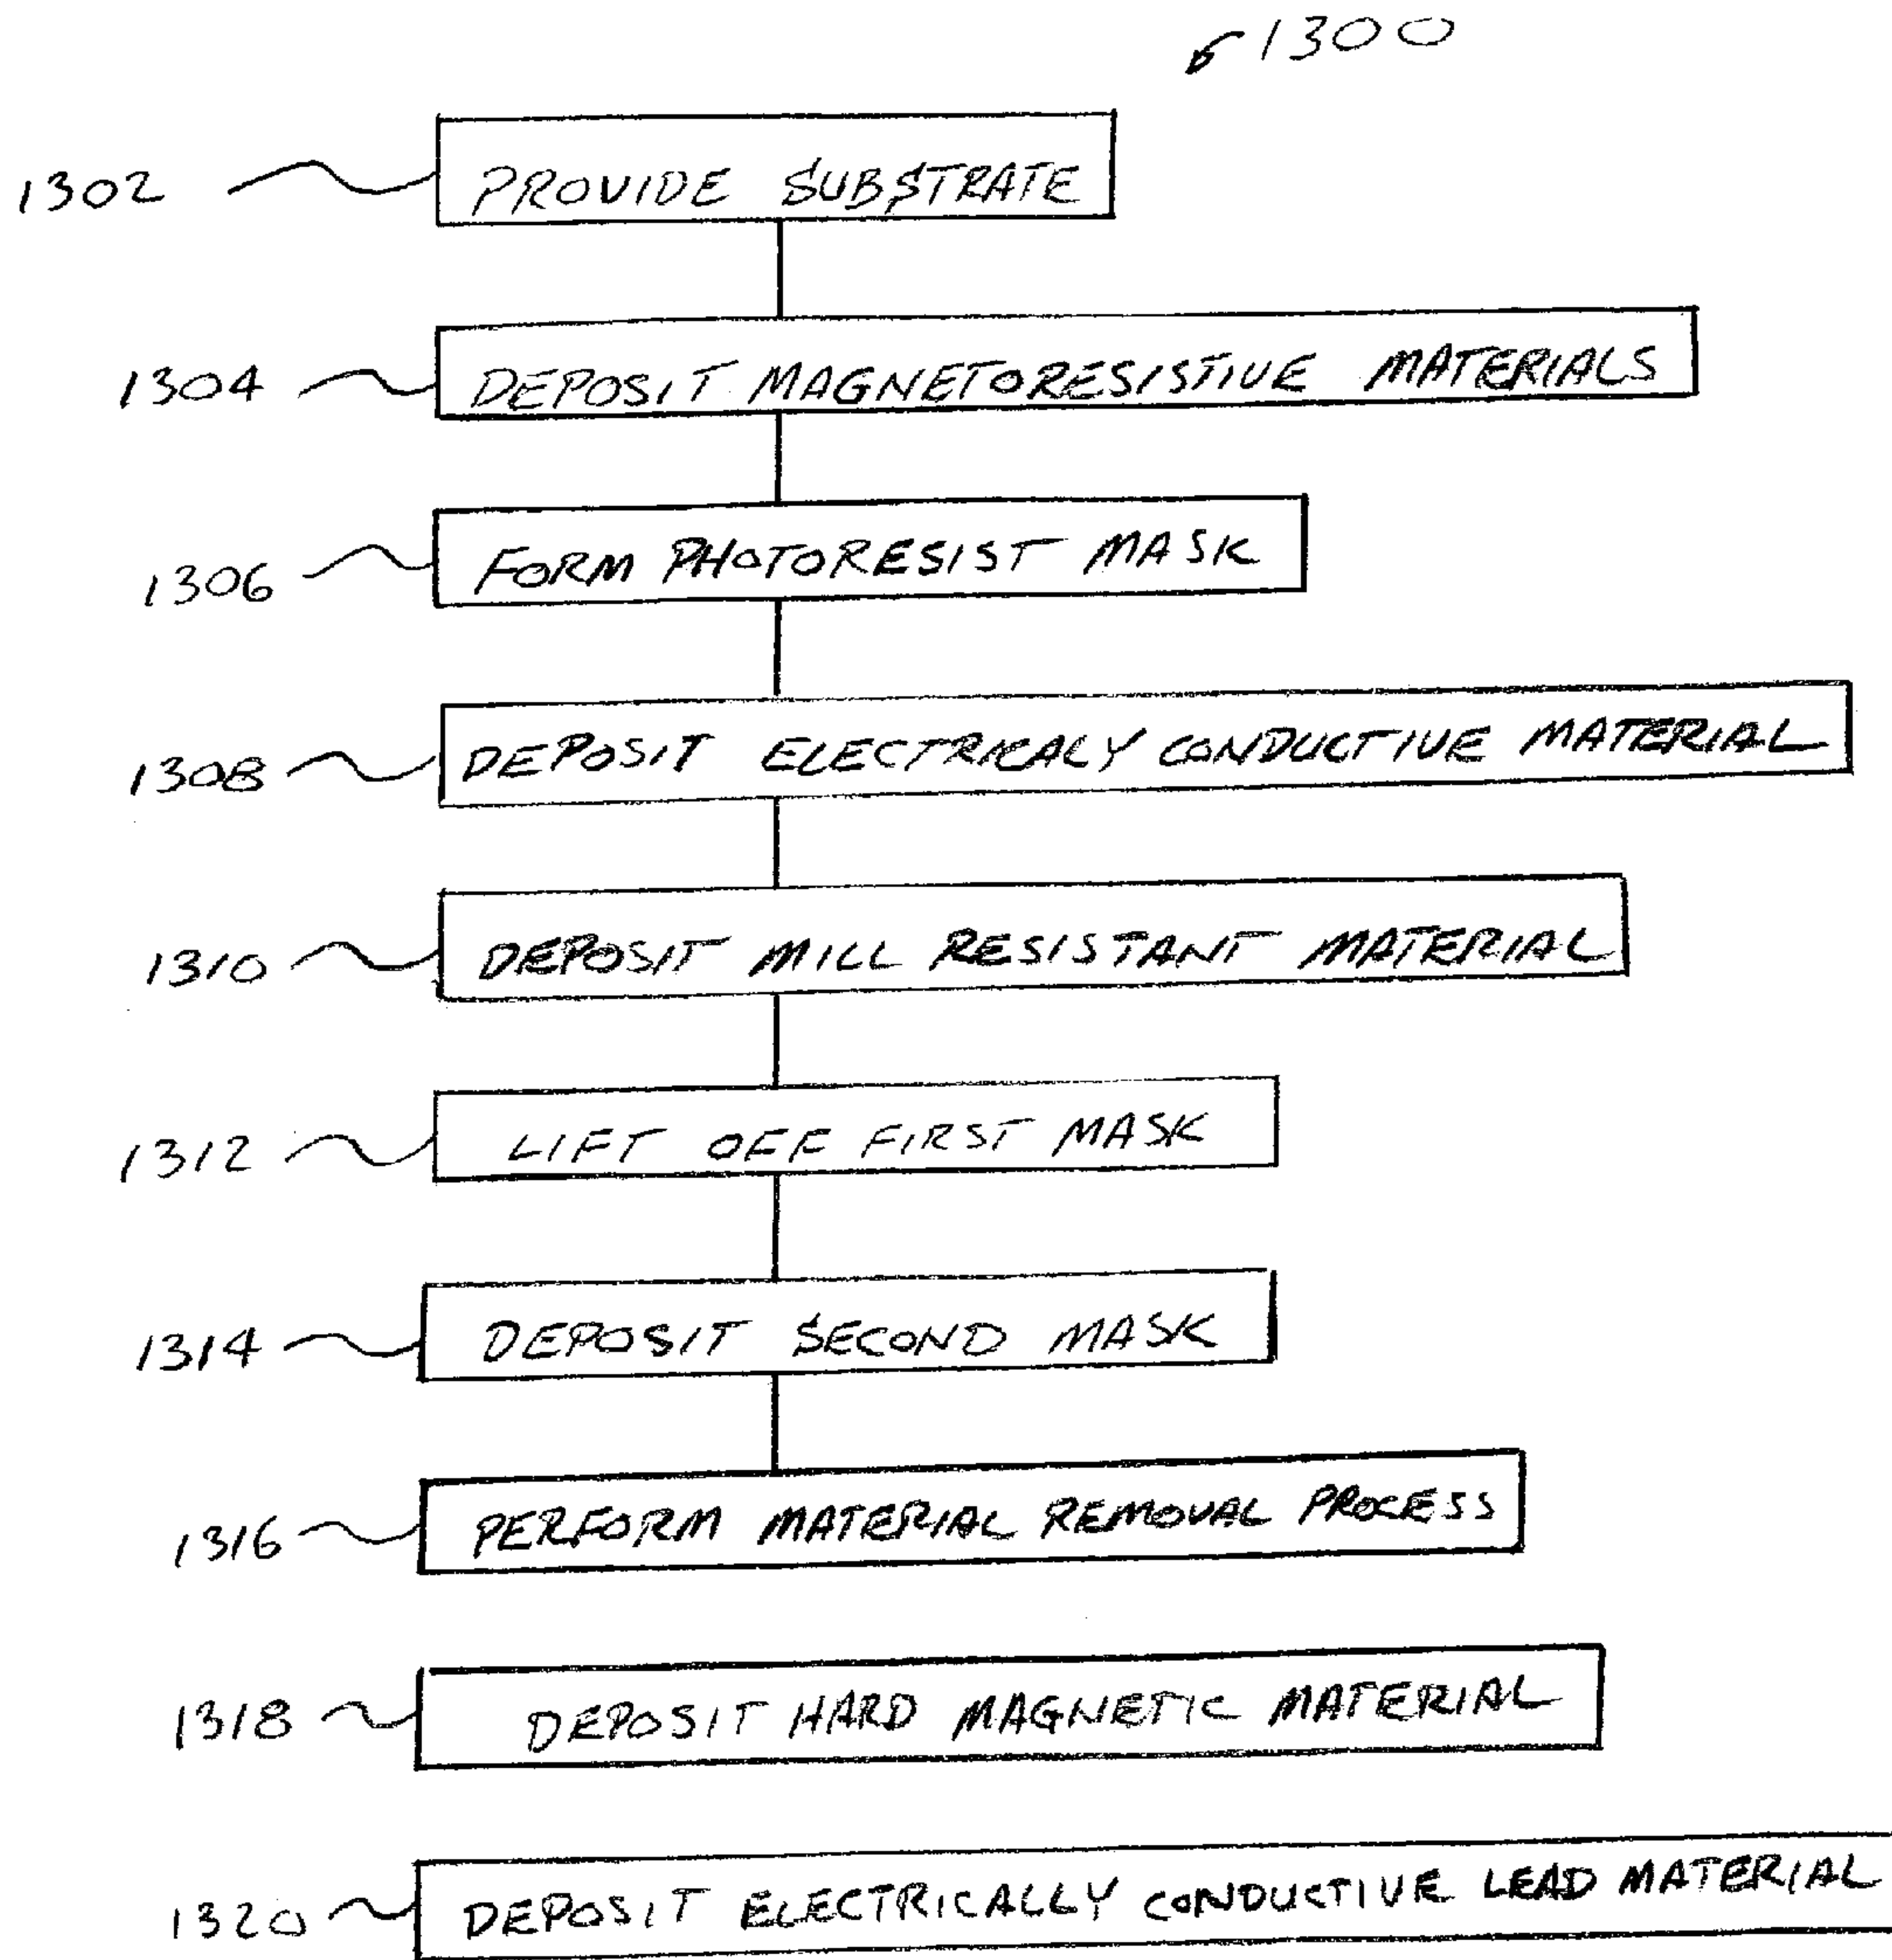 1300
1302 PROVIDE SUBSTRATE
1304 DEPOSIT MAGNETORESISTIVE MATERIALS
1306 FORM PHOTORESIST MASK
1308 DEPOSIT ELECTRICALY CONDUCTIVE MATERIAL
1310 DEPOSIT MILL RESISTANT MATERIAL
1312 LIFT OFF FIRST MASK
1314 DEPOSIT SECOND MASK
1316 PERFORM MATERIAL REMOVAL PROCESS
1318 DEPOSIT HARD MAGNETIC MATERIAL
1320 DEPOSIT ELECTRICALLY CONDUCTIVE LEAD MATERIAL